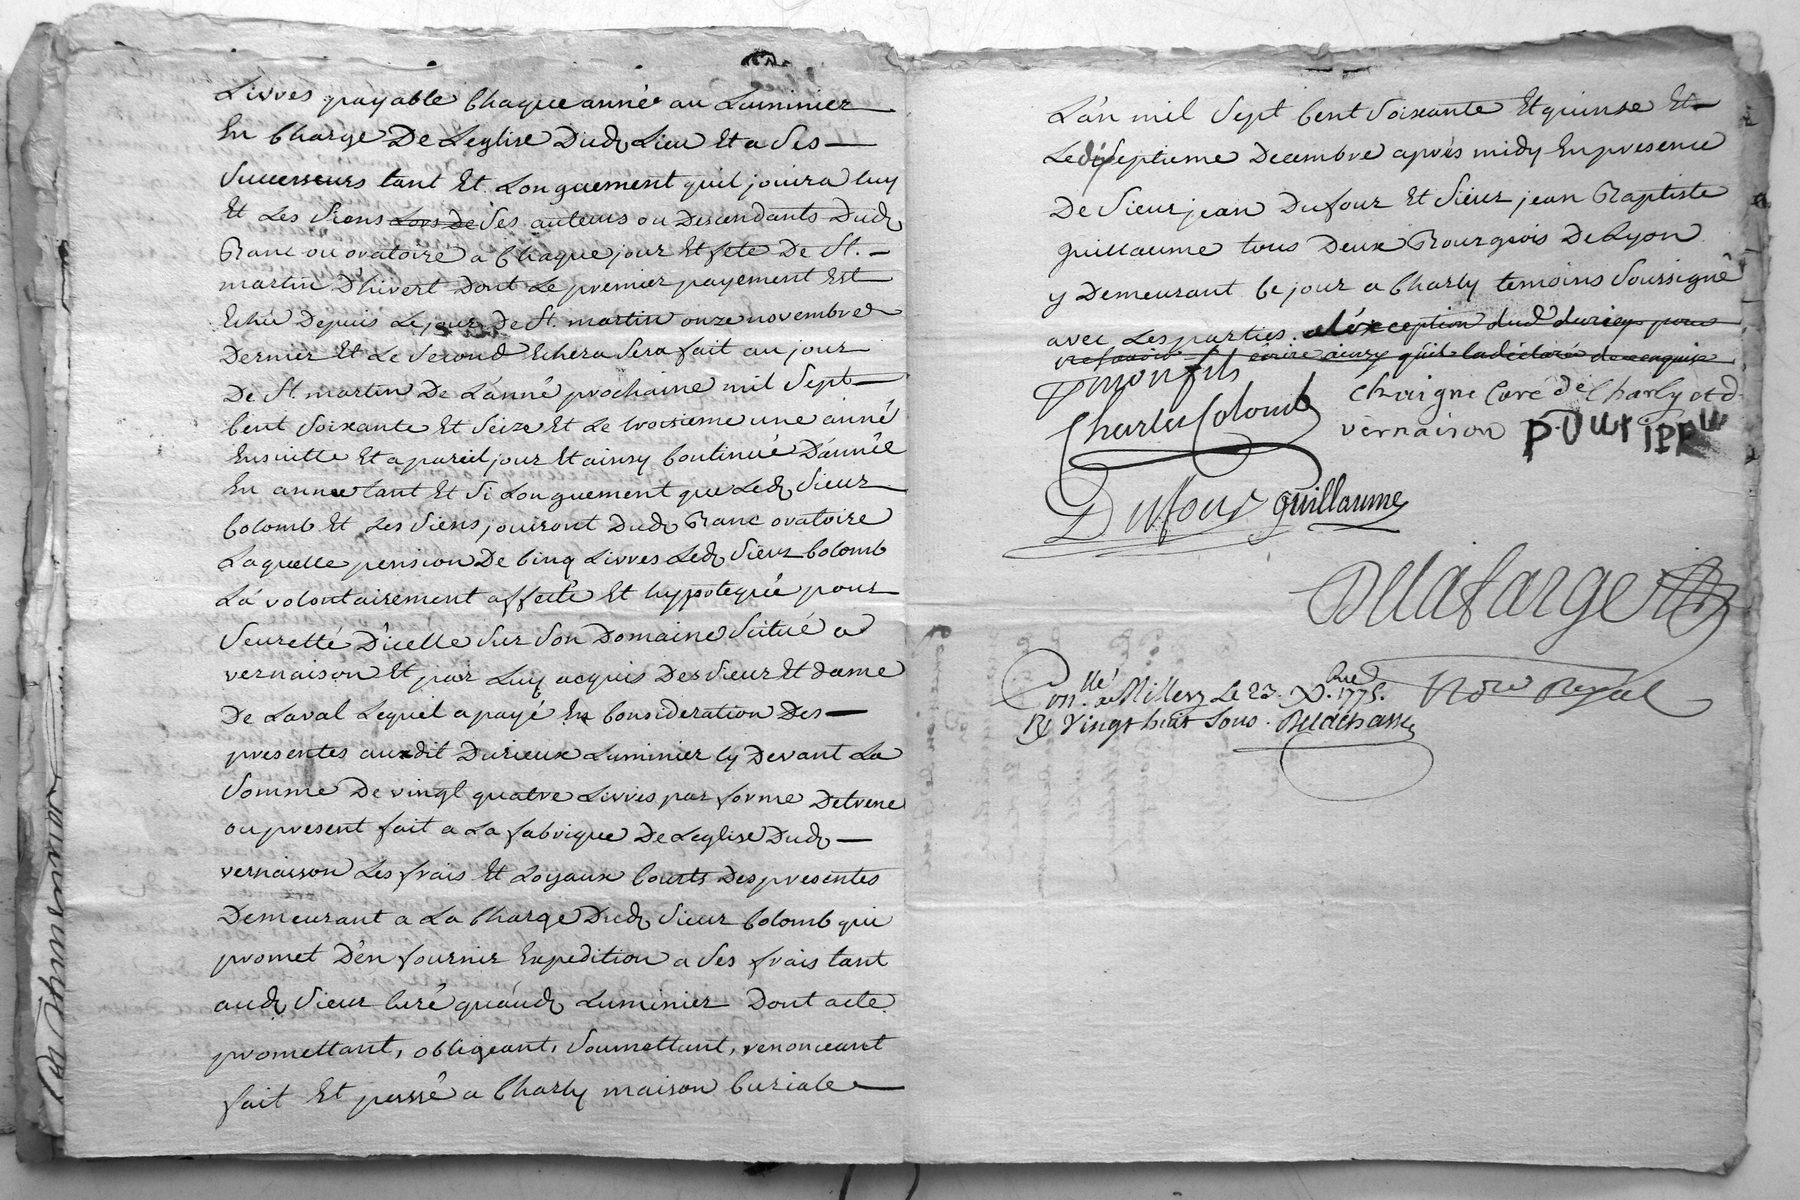 Livres payable Chaque année au Luminier
En Charge De Leglise Dud. Lieu Et a Ses
Successeurs tant Et Longuement quil jouira luy
Et Les Siens Lors De Ses auteurs ou Descendants Dud.
Banc ou oratoire a Chaque jour Et fete De St.
martin D'hivert Dont Le premier payement Est
Echu Depuis Le jour De St. martin onze novembre
Dernier Et Le Second Echera Sera fait au jour
De St. martin De L'anné prochaine mil Sept
Cent Soixante Et Seize Et Le troisieme une anné
Ensuitte Et a pareil jour Et ainsy Continué D'année
En année tant Et Si Longuement que Led. Sieur
Colomb Et Les Siens jouiront Dud. Banc oratoire
Laquelle pension De Cinq Livres Led. Sieur Colomb
La volontairement affecté Et hypotequé pour
Seuretté D'icelle Sur Son Domaine Scitué a
vernaison Et par Luy acquis Des Sieur Et dame
De Laval Lequel a payé En Consideration Des
presentes audit Durieux Luminier Cy Devant La
Somme De vingt quatre Livres par forme Detrene
ou present fait a La fabrique De Leglise Dud.
vernaison Les frais Et Loyaux Couts Des presentes
Demeurant a La Charge Dud. Sieur Colomb qui
promet D'en fournir Expedition a Ses frais tant
aud. Sieur Curé qu'aud. Luminier Dont acte
promettant, obligeant, Soumettant, renonceant
fait Et passé a Charly maison Curiale
L'an mil Sept Cent Soixante Et quinse Et
Le dixseptieme Decembre après midy En presence
De Sieur jean Dufour Et Sieur jean Baptiste
guillaume tous Deux Bourgeois De Lyon
y Demeurant Ce jour a Charly temoins Soussigné
avec Les parties. a l'exception dud. durieu pour
ne Savoir écrire ainsy qu'il la déclaré de ce enquis
Charles Colomb
Chaigne Curé de Charly et d.
vernaison
Dufour guillaume
Delafarge
Con.llé a Millery Le 23. Xbre 1775.
R. Vingt huit Sous. 
Nore Royal